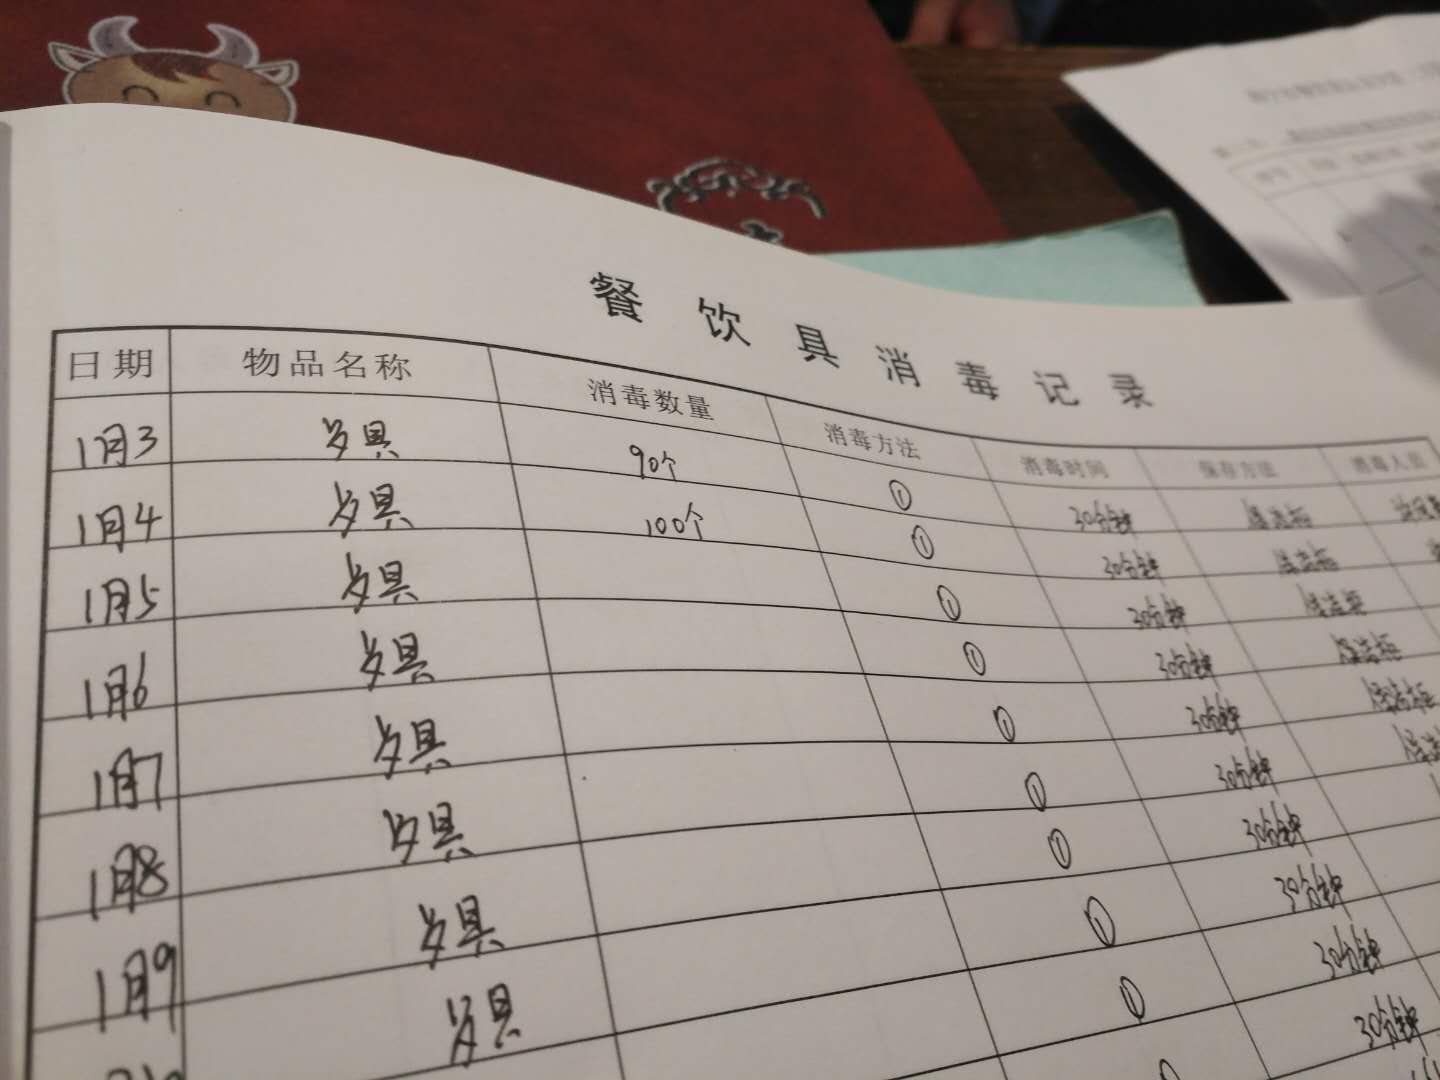 餐饮具消毒记录
日期 物品名称 消毒数量 消毒方法 消毒时间 保存方法 消毒人员
1月3 歺具 90个 ① 30分钟 保洁柜
1月4 歺具 100个 ① 30分钟 保洁柜
1月5 歺具 ① 30分钟 保洁柜
1月6 歺具 ① 30分钟 保洁柜
1月7 歺具 ① 30分钟 保洁柜
1月8 歺具 ① 30分钟
1月9 歺具 ① 30分钟
歺具 ① 30分钟
① 30分钟
30分钟